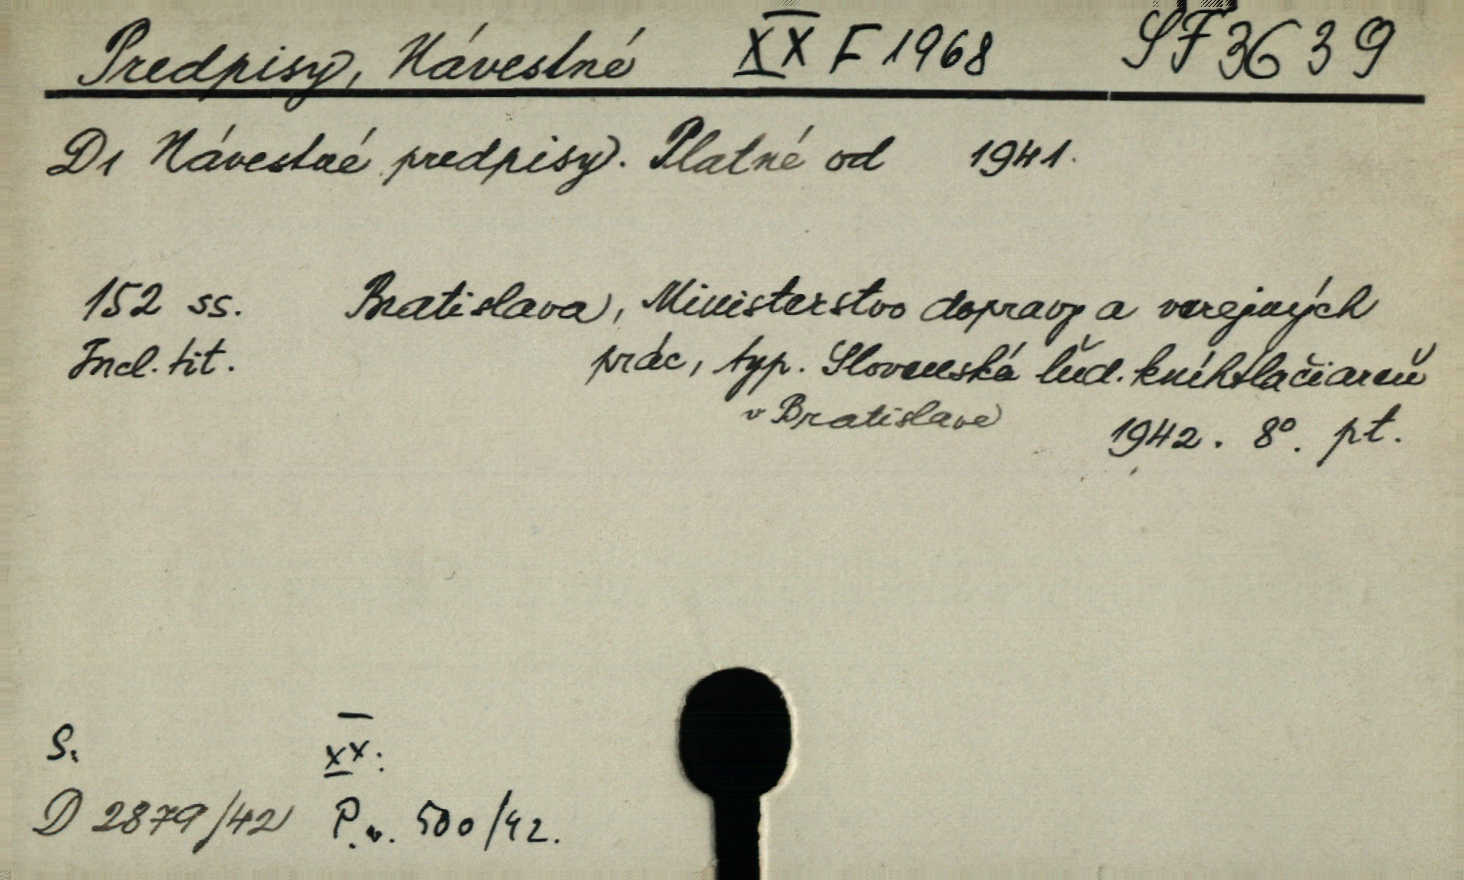 Predpisy, Návestné XX F 1968 SF 3639
D1 Návestné predpisy. Platné od 1941.
152 ss. Bratislava, Ministerstvo dopravy a verejných
Incl. tit. prác, typ. Slovenská ľud. kníhtlačiareň
v Bratislave
1942. 8°. pt.
S. XX.
D 2879/42 P. v. 500/42.